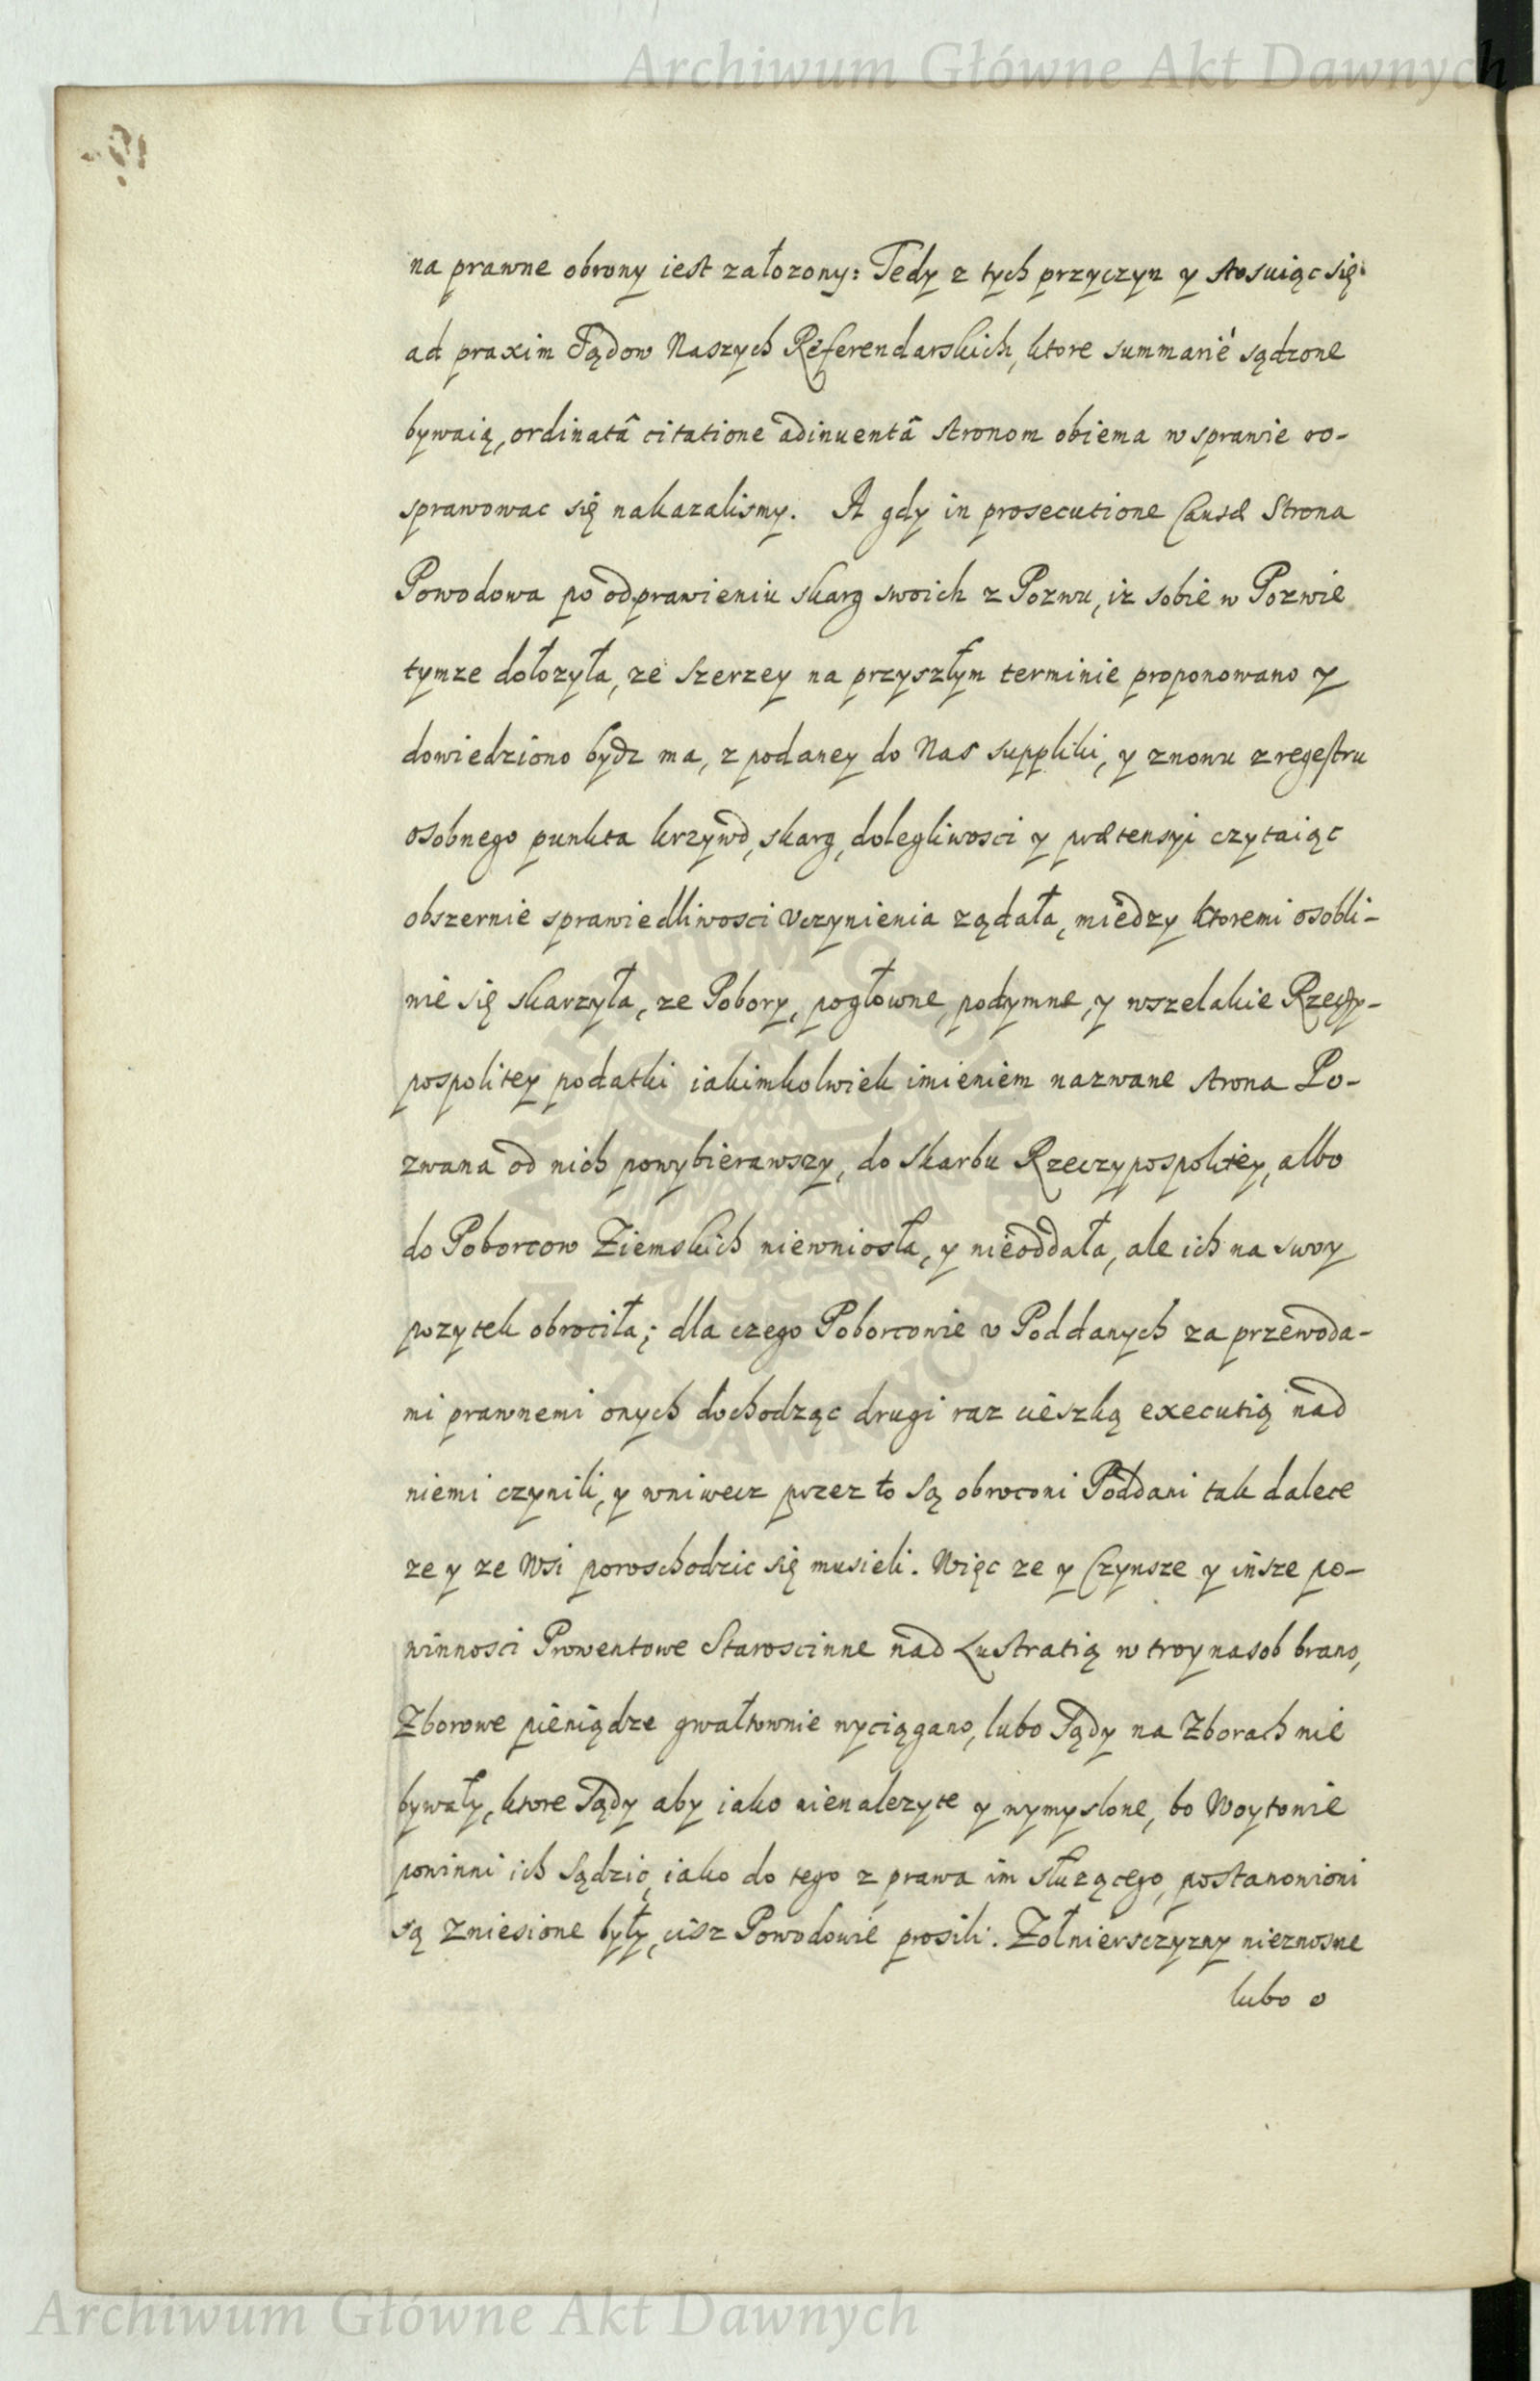 Archiwum Główne Akt Dawnych
na prawne obrony iest załozony: Tedy z tych przyczyn y stosuiąc się
ad praxim Sądow Naszych Referendarskich, ktore summariè sądzone
bywaią, ordinatâ citatione adinuentâ stronom obiema w sprawie ro-
sprawowac się nakazalismy. A gdy in prosecutione Causæ Strona
Powodowa po odprawieniu skarg swoich z Pozwu, iz sobie w Pozwie
tymze dołozyła, ze szerzey na przyszłym terminie proponowano y
dowiedziono bydz ma, z podaney do Nas suppliki, y znowu z regestru
osobnego punkta krzywd, skarg, dolegliwosci y prætensyi czytaiąc
obszernie sprawiedliwosci vczynienia ządała, miedzy ktoremi osobli-
wie się skarzyła, ze Pobory, pogłowne, podymne, y wszelakie Rzeczy-
pospolitey podatki iakimkolwiek imieniem nazwane strona Po-
zwana od nich powybierawszy, do skarbu Rzeczypospolitey, albo
do Poborcow Ziemskich niewniosła, y nieoddała, ale ich na swoy
pozytek obrociła; dla czego Poborcowie v Poddanych za przewoda-
mi prawnemi onych dochodząc drugi raz cieszką executią nad
niemi czynili, y wniwecz przez to są obroconi Poddani tak dalece
ze y ze Wsi poroschodzic się musieli. Więc ze y Czynsze y insze po-
winnosci Prowentowe Staroscinne nad Lustratią w troynasob brano,
Zborowe pieniądze gwałtownie wyciągano, lubo Sądy na Zborach nie
bywały, ktore Sądy aby iako nienalezyte y wymyslone, bo Woytowie
powinni ich sądzic, iako do tego z prawa im słuzącego, postanowioni
są zniesione były, cisz Powodowie prosili. Zołniersczyzny nieznosne
lubo o
Archiwum Główne Akt Dawnych